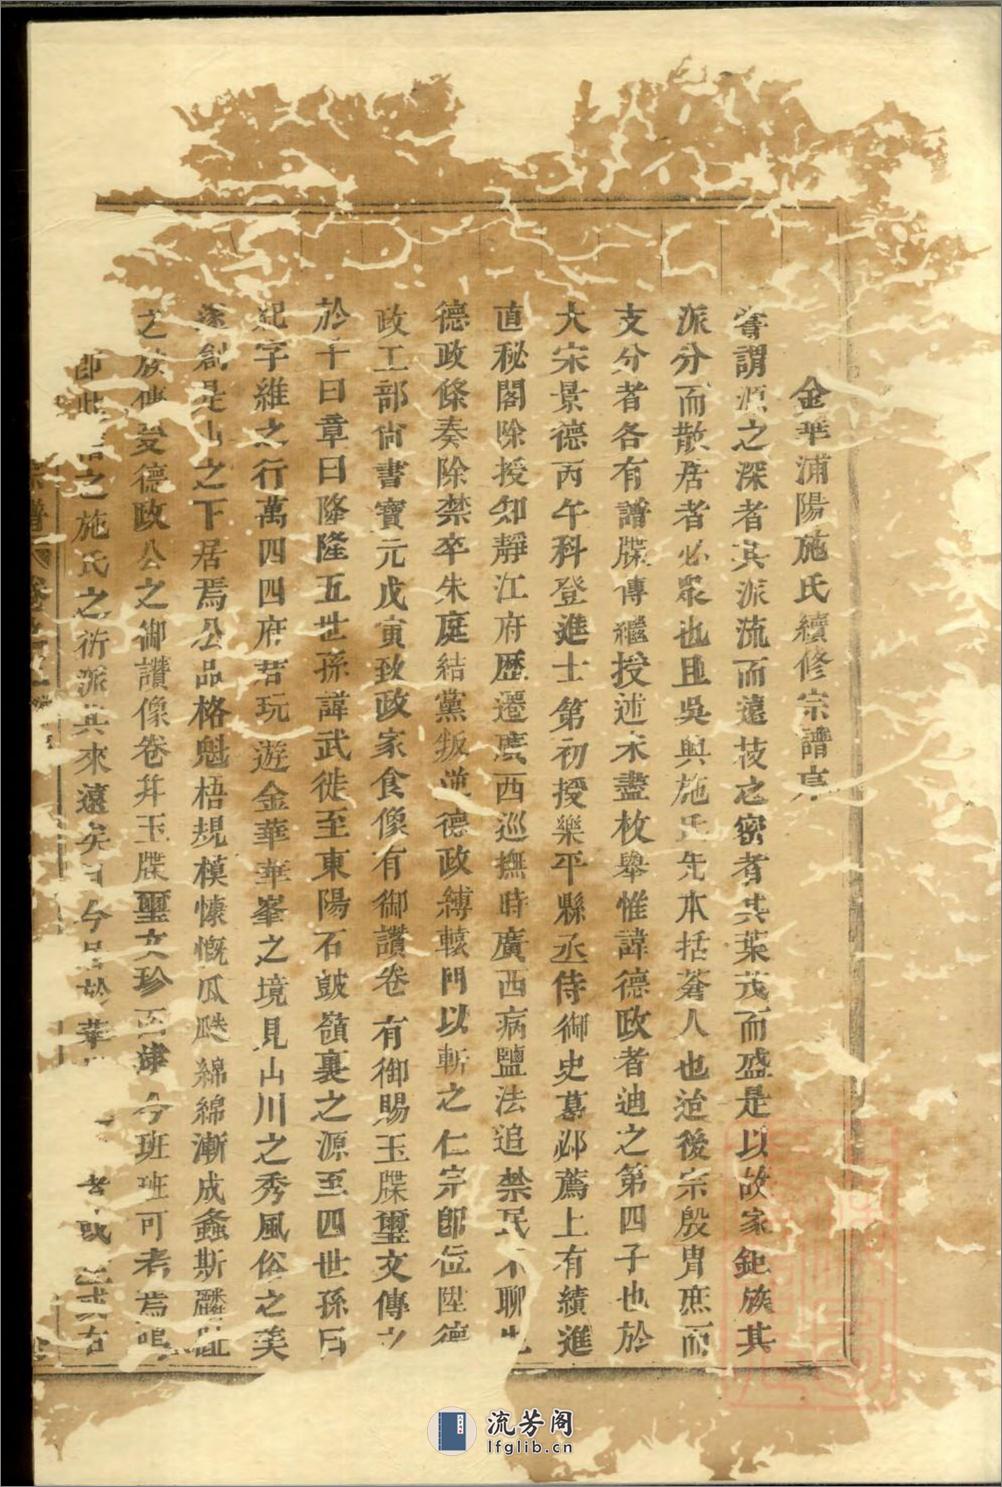 金華浦陽施氏續修宗譜序
嘗謂源之深者其派流而遠枝之密者其葉茂而盛是以故家鉅族其
派分而散居者必衆也且吳興施氏先本括蒼人也迨後宗殷胄庶而
支分者各有譜牒傳繼授述未盡枚舉惟諱德政者迪之第四子也於
大宋景德丙午科登進士第初授樂平縣丞侍御史慕邲薦上有績進
直秘閣除授知靜江府歷遷廣西巡撫時廣西病鹽法追禁民不聊生
德政條奏除禁卒朱庭結黨叛逆德政縛轅門以斬之仁宗即位陞德
政工部尚書寶元戊寅致政家食像有御讚卷有御賜玉牒璽文傳之
於千曰章曰隆隆五世孫諱武徙至東陽石皷嶺裏之源至四世孫曰
紀字維之行萬四四府君玩遊金華華峯之境見山川之秀風俗之美
遂創是山之下居焉公品格魁梧規模慷慨瓜瓞綿綿漸成螽斯麟趾
之族傳受德政公之御讚像卷幷玉牒璽文珍函肆今班班可考焉
即此 之施氏之衍派其來遠矣 今 華
者或
宗譜 卷之
流芳阁
lfglib.cn